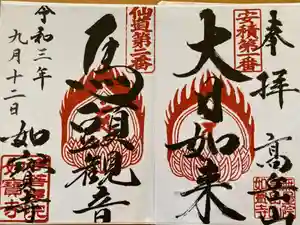 奉拝
安積第一番
大日如来
高岳山
仙道第三番
馬頭観音
如寶寺
令和三年
九月十二日